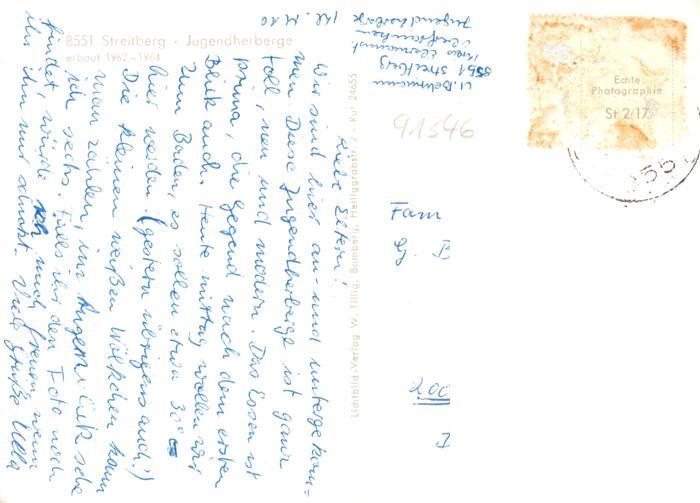 8551 Streitberg - Jugendherberge
erbaut 1962-1964
Liebe Eltern!
Wir sind hier an- und untergekom=
men. Diese Jugendherberge ist ganz
toll, neu und modern. Das Essen ist
prima, die Gegend nach dem ersten
Blick auch. Heute mittag wollen wir
zum Baden, es sollen etwa 30°
hier werden. (gestern übrigens auch!)
Die kleinen weißen Wölkchen kann
man zählen, im Augenblick sehe
ich sechs. Falls ihr den Foto noch
findet, würde ich mich freuen, wenn
ihr ihn mir schickt. Viele Grüße
Lichtbild-Verlag W. Tillig, Bamberg, Heiliggrabstr. 7 - Ruf 24655
U. Behrmann
8551 Streitberg
Kreis Ebermannstadt
Oberfranken
Jugendherberge
91346
Echte
Photographie
St 2/17
55
Fam
200